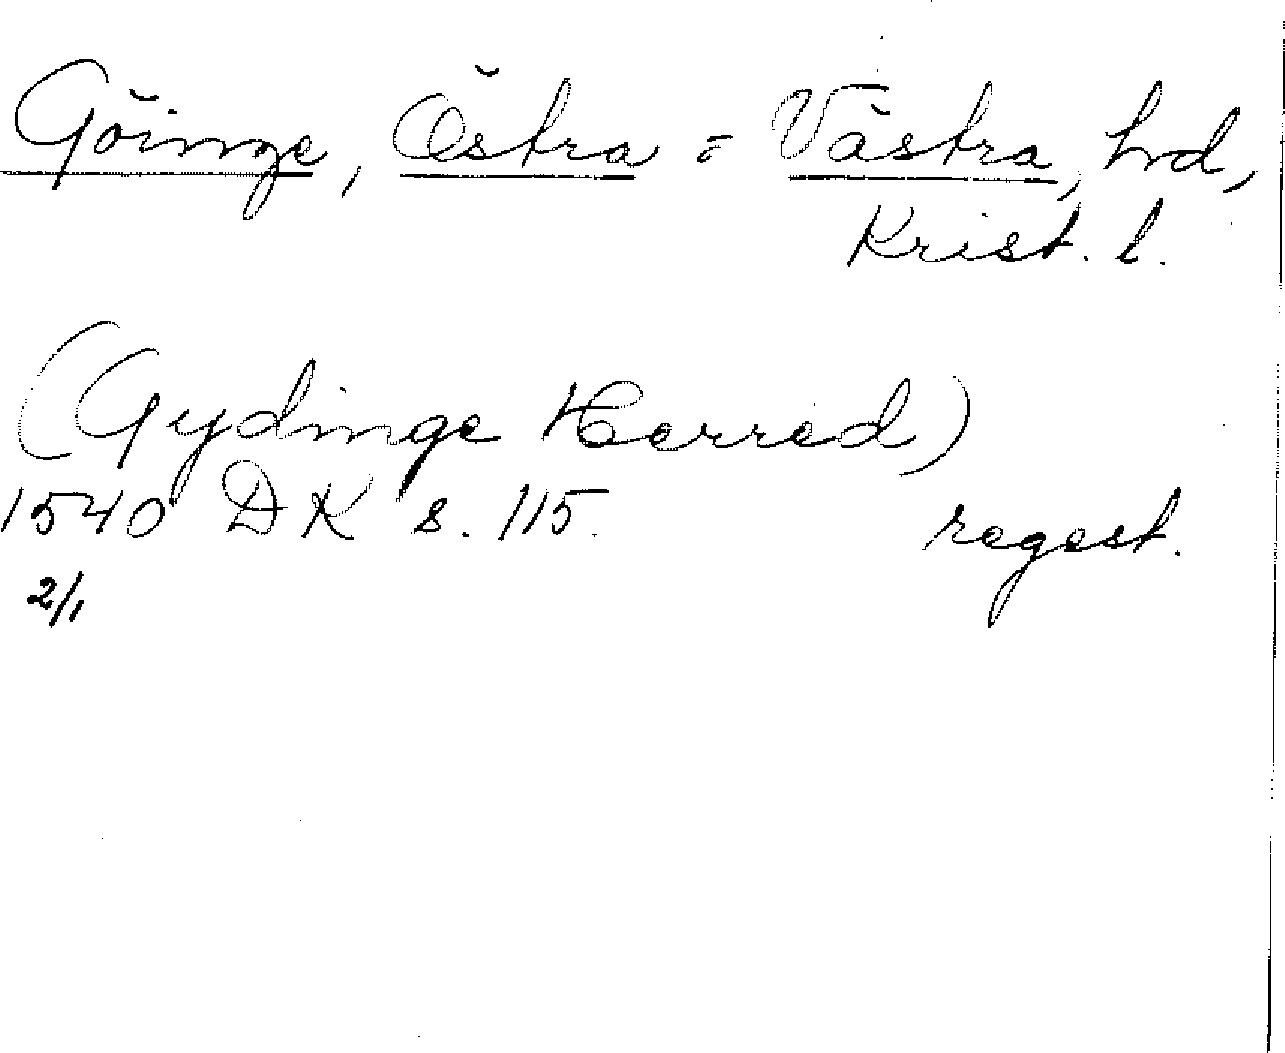 Göinge, Östra = Västra, hrd,
Krist. l.
(Gydinge Herred)
1540 DK s. 115. regest.
2/1